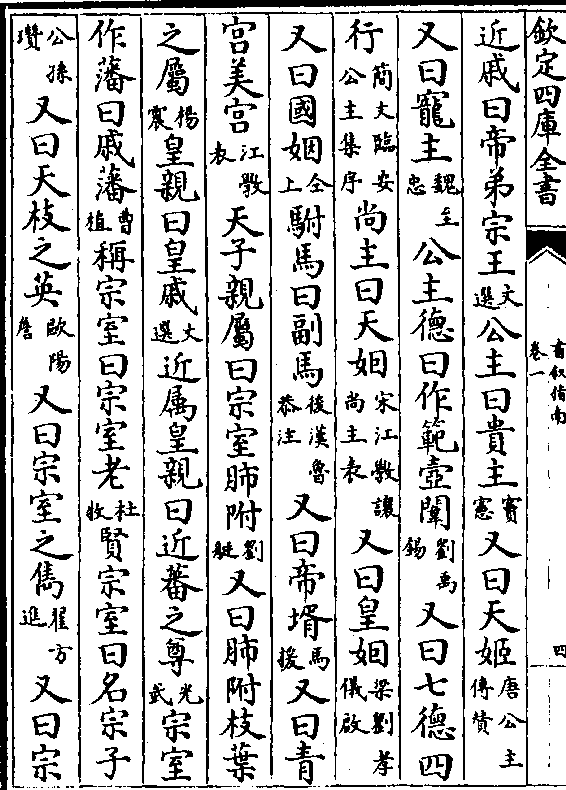 欽定四庫全書
書敘指南
卷一
四
近戚曰帝弟宗王文選公主曰貴主竇憲又曰天姬唐公主傳贊
又曰寵主魏主忠公主德曰作範壼闈劉禹錫又曰七德四
行簡文臨安公主集序尚主曰天姻宋江斅讓尚主表又曰皇姻梁劉孝儀啟
又曰國姻仝上駙馬曰副馬後漢魯恭注又曰帝壻馬援又曰青
宫美宫江斅表天子親屬曰宗室肺附劉䞓又曰肺附枝葉
之屬楊震皇親曰皇戚文選近属皇親曰近蕃之尊光武宗室
作藩曰戚藩曹植稱宗室曰宗室老杜牧賢宗室曰名宗子
公孫瓚又曰天枝之英歐陽詹又曰宗室之儁翟方進又曰宗